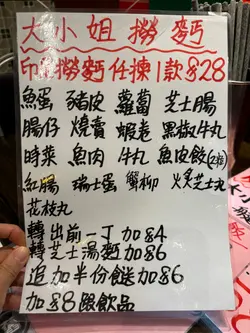 大小姐撈麵
印尼撈麵任揀1款$28
魚蛋 豬皮 蘿蔔 芝士腸
腸仔 燒賣 蝦卷 黑椒牛丸
時菜 魚肉 牛丸 魚皮餃(2粒)
紅腸 瑞士蛋 蟹柳 火炙芝士丸
花枝丸
轉出前一丁加$4
轉芝士湯麵加$6
追加半份餸加$6
加$8跟飲品